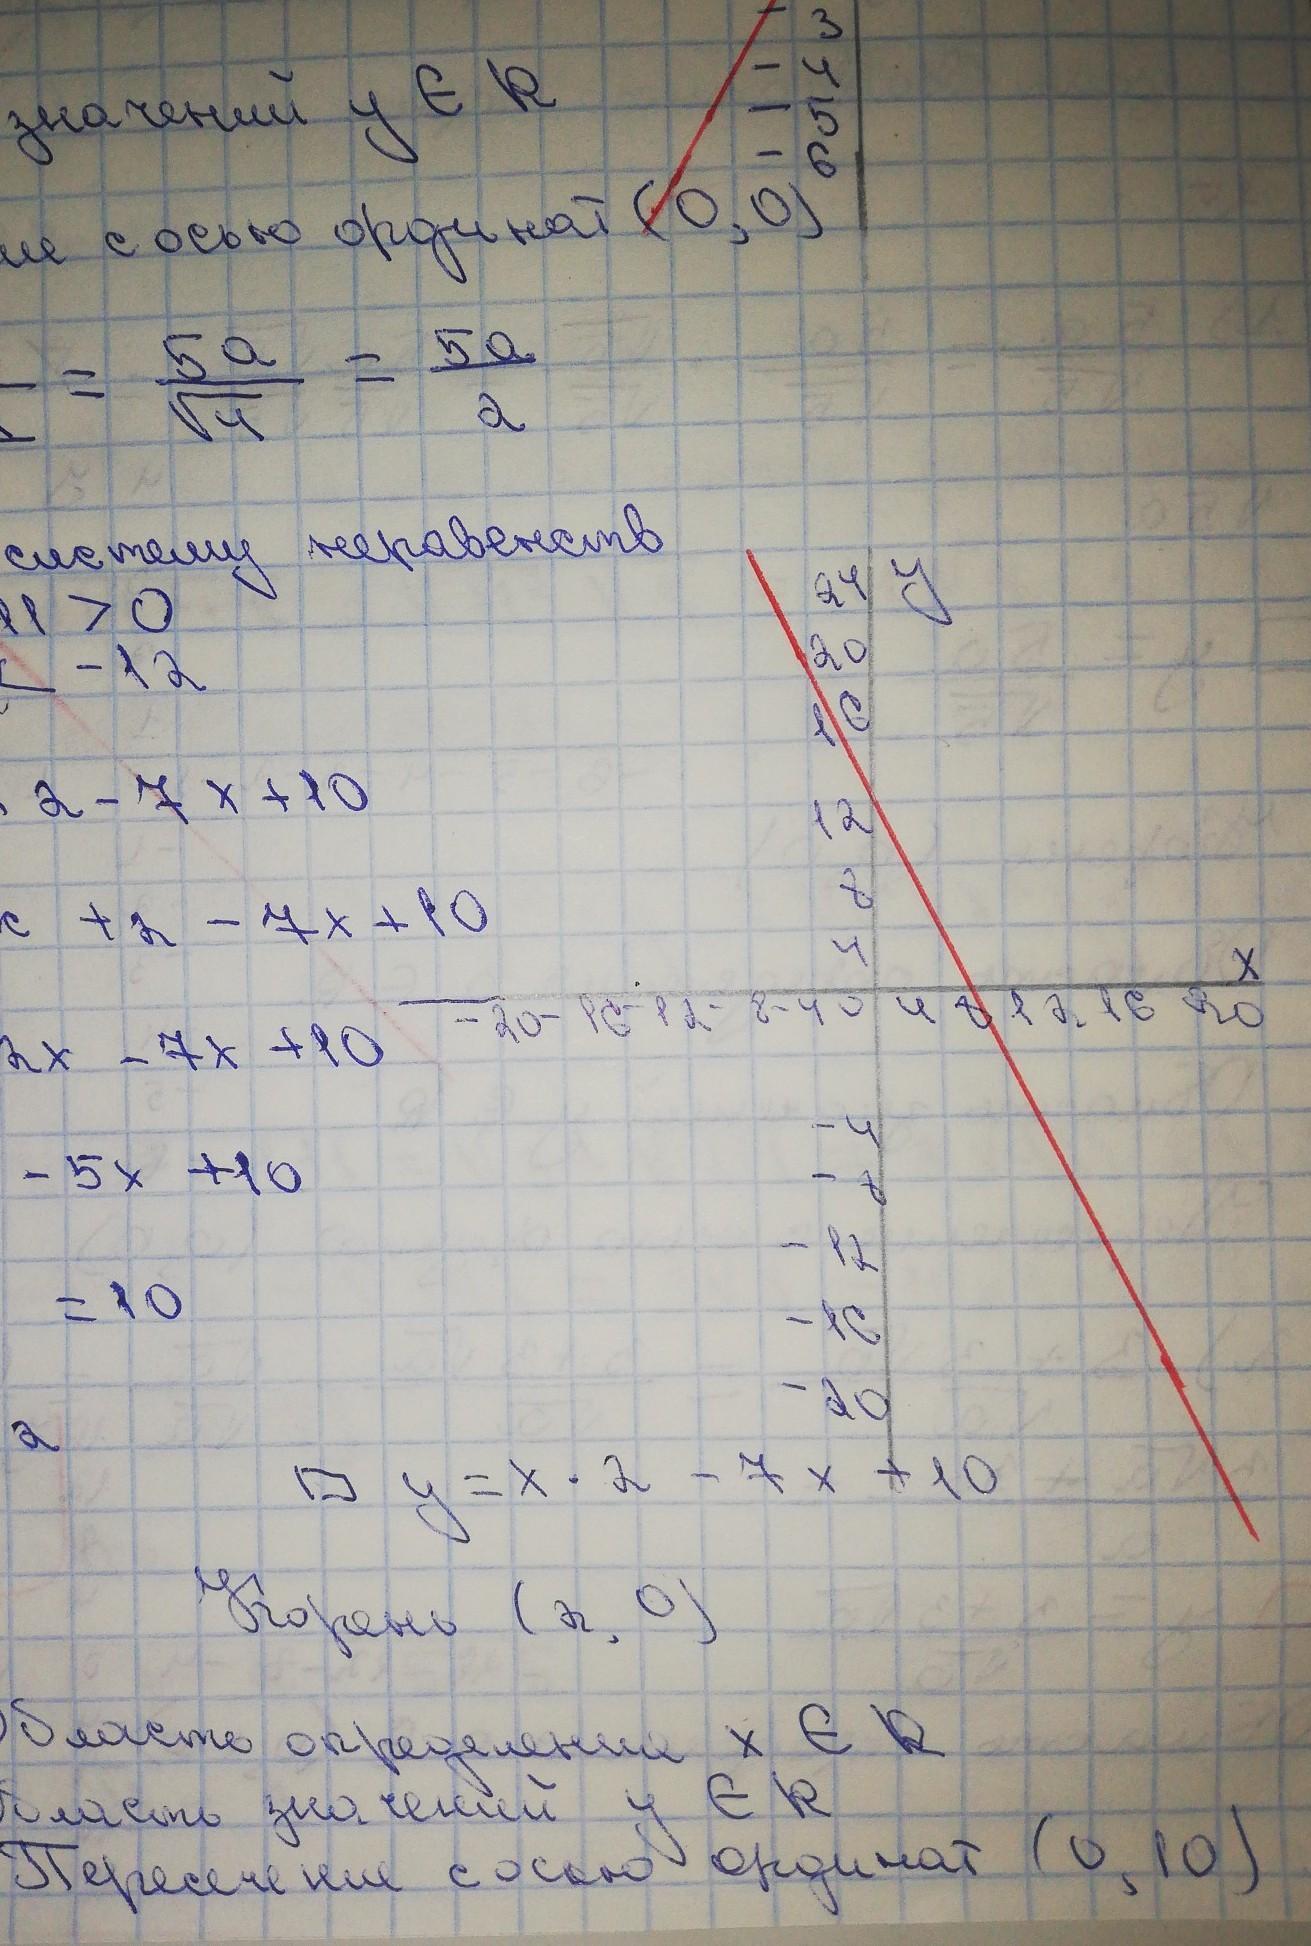 - 3
- 4
- 5
- 6
значений y ∈ R
сосью ординат (0,0)
= 5a/√4 = 5a/2
систему неравенств
11 > 0
-12
2 - 7x + 10
+2 - 7x + 10
2x - 7x + 10
- 5x + 10
= 10
2
y
24
20
16
12
8
4
x
-20 -16 -12 -8 -4 0 4 8 12 16 20
-4
-8
-12
-16
-20
y = x · 2 - 7x + 10
Корень (2, 0)
Область определении x ∈ R
область значений y ∈ R
Пересечение сосью ординат (0, 10)